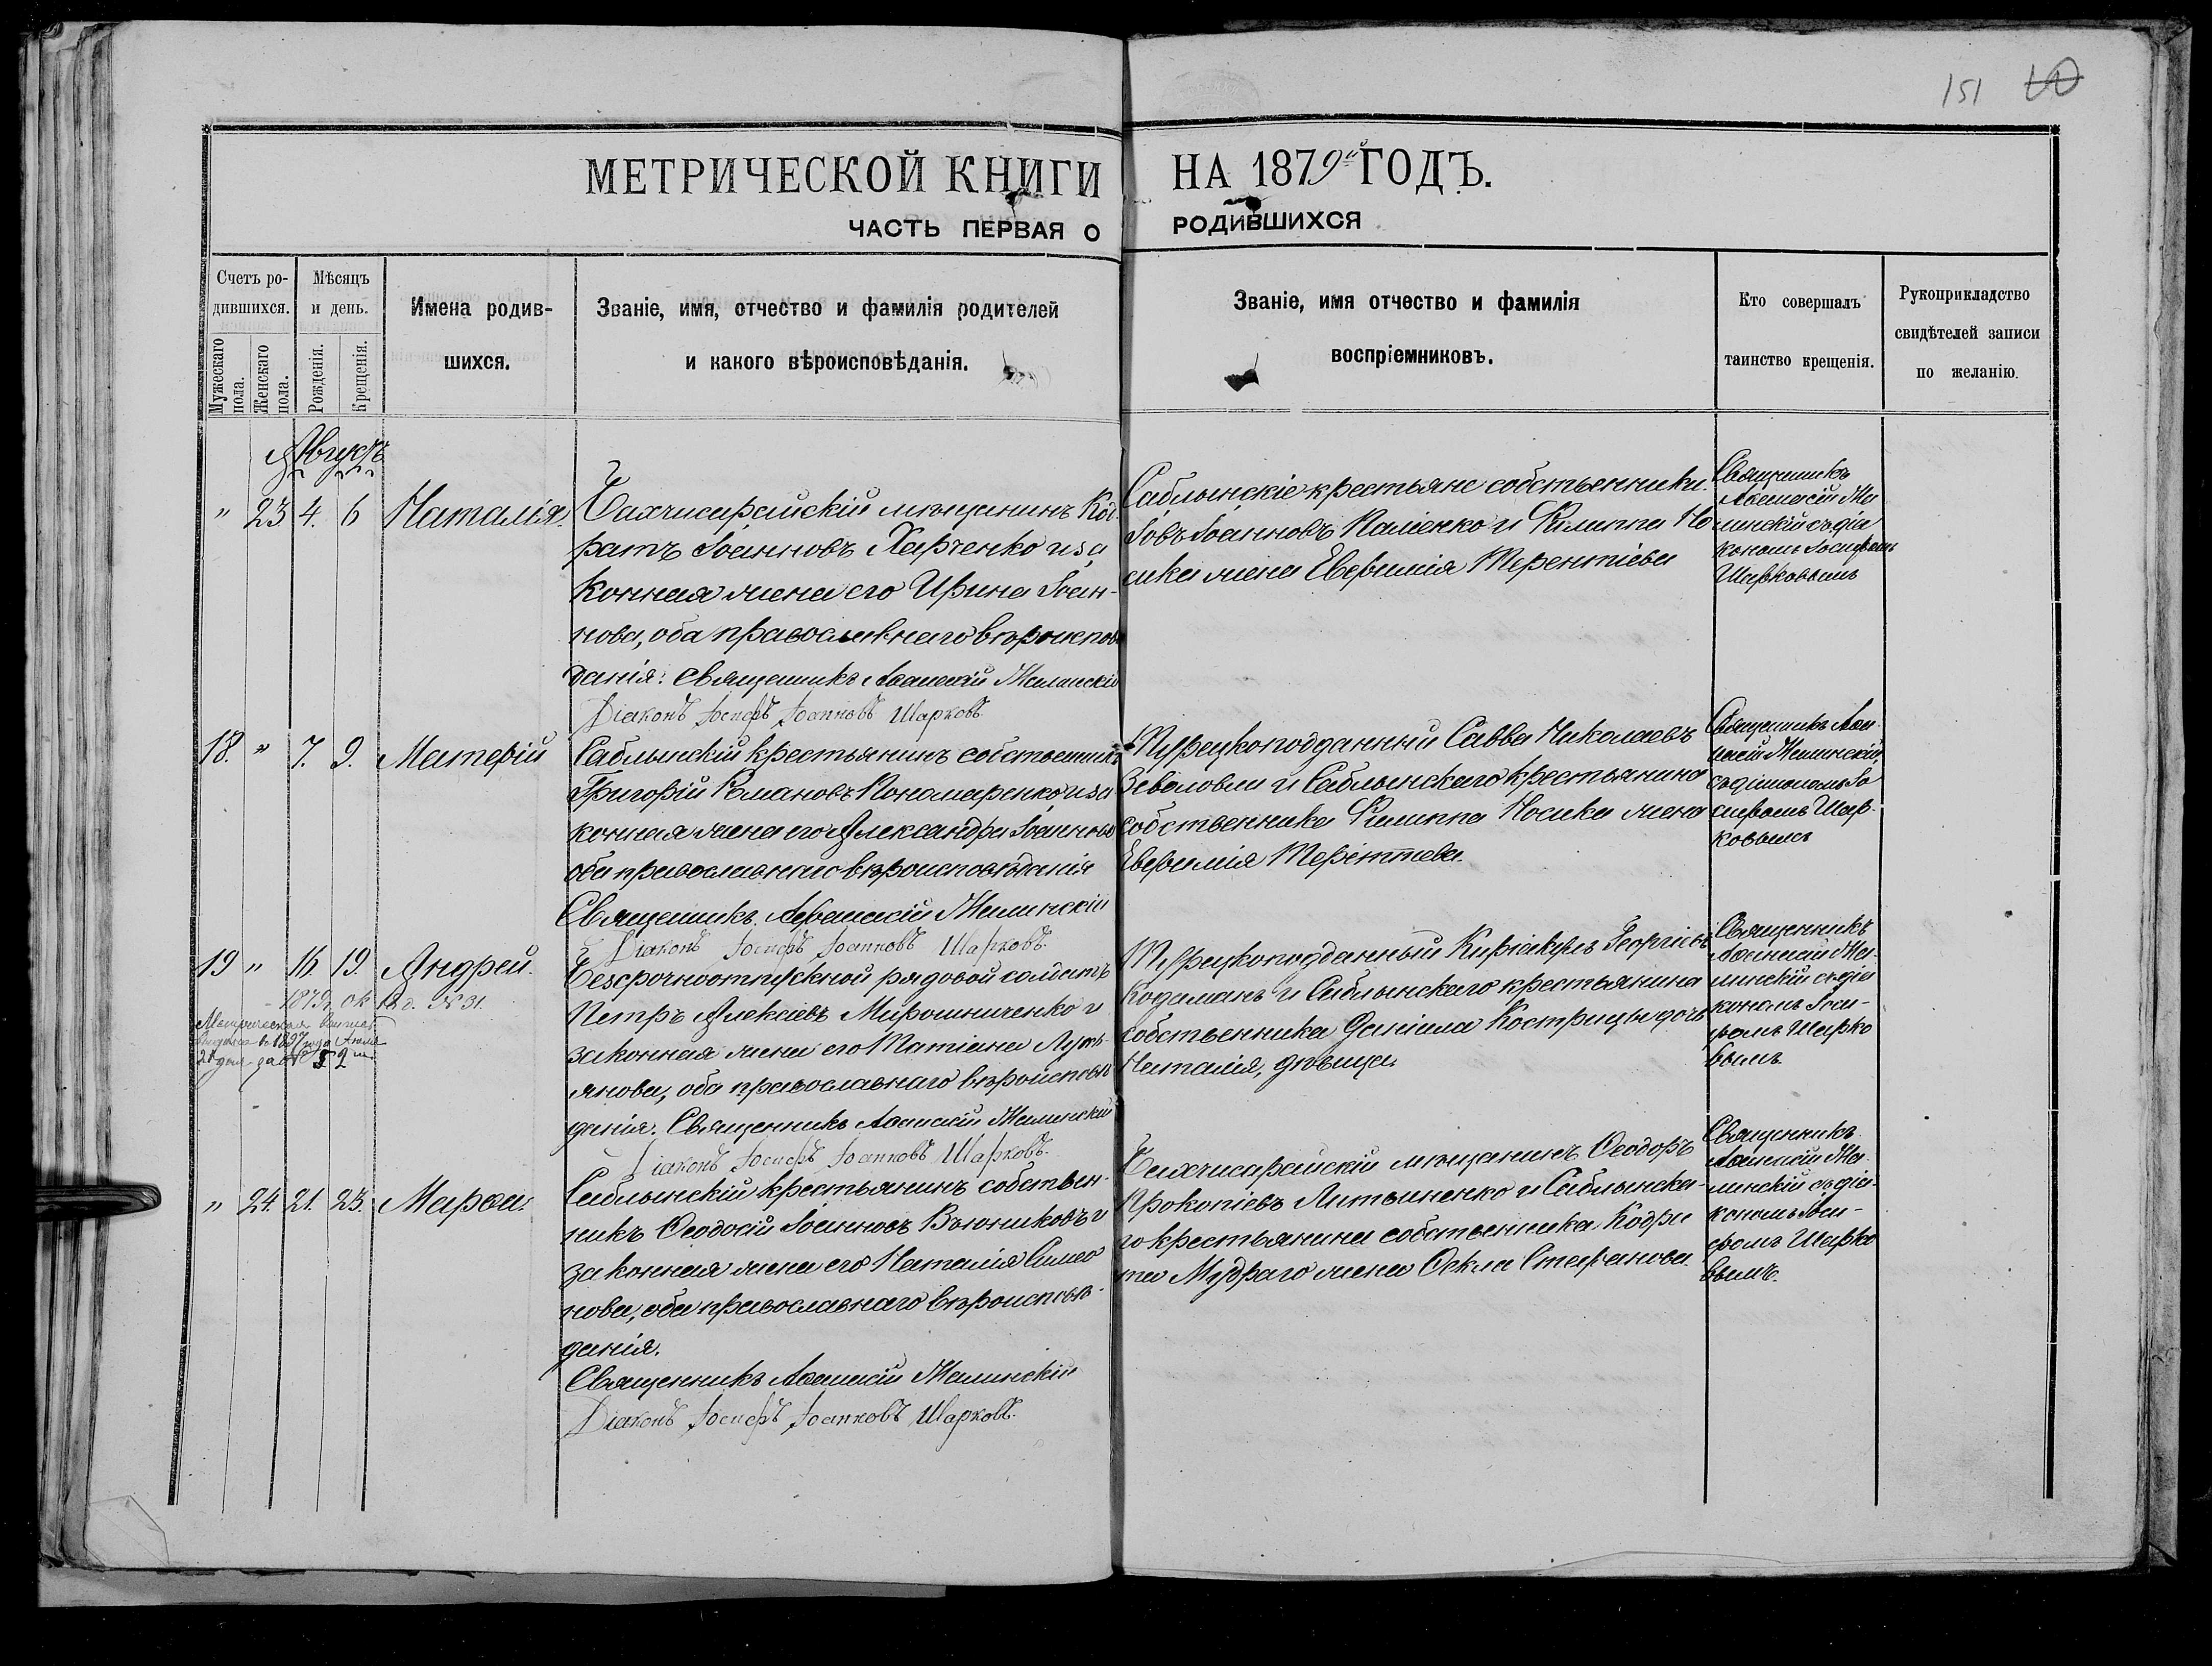 151
МЕТРИЧЕСКОЙ КНИГИ НА 1879й ГОДЪ.
ЧАСТЬ ПЕРВАЯ О РОДИВШИХСЯ
Счетъ ро-
дившихся.
Мужескаго
пола.
Женскаго
пола.
Мѣсяцъ
и день.
Рожденія.
Крещенія.
Имена родив-
шихся.
Званіе, имя, отчество и фамилія родителей
и какого вѣроисповѣданія.
Званіе, имя отчество и фамилія
воспріемниковъ.
Кто совершалъ
таинство крещенія.
Рукоприкладство
свидѣтелей записи
по желанію.
Августъ
" 23 4. 6 Наталія.
Бахчисарайскій мѣщанинъ Код-
ратъ Іоанновъ Харченко и за
конная жена его Ирина Іоан-
нова, оба православнаго вѣроисповѣ
данія: Священникъ Аѳанасій Жилинскій
Діаконъ Іосифъ Іоанновъ Шарковъ.
Саблынскіе крестьяне собственники
Іовъ Іоанновъ Паліенко и Филиппа Но
сика жена Евфимія Терентіева
Священникъ
Аѳанасій Жи
линскій съ діа
кономъ Іосифомъ
Шарковымъ
18. " 7. 9. Матѳій
Саблынскій крестьянинъ собственникъ
Григорій Романовъ Пономаренко и за
конная жена его Александра Іоаннова
оба православнаго вѣроисповѣданія
Священникъ Аѳанасій Жилинскій
Діаконъ Іосифъ Іоанновъ Шарковъ.
Турецкоподданный Савва Николаевъ
и Саблынскаго крестьянина
собственника Филиппа Носика жена
Евфимія Терентіева.
Священникъ Аѳа
насій Жилинскій,
съ діакономъ Іо
сифомъ Шар-
ковымъ
19 " 16. 19. Андрей.
1879 г. ок. 18 г. № 31.
Метрическая выпись
выдана въ 1897 года
Безсрочноотпускной рядовой солдатъ
Петръ Алексіевъ Мирошниченко и
законная жена его Татіана Лукь-
янова, оба православнаго вѣроисповѣ
данія. Священникъ Аѳанасій Жилинскій
Діаконъ Іосифъ Іоанновъ Шарковъ.
Турецкоподданный Киріакулъ Георгіевъ
Кодаманъ и Саблынскаго крестьянина
собственника Даніила Кострицы дочь
Наталія, дѣвица
Священникъ
Аѳанасій Жи
линскій съ діа
кономъ Іоси-
фомъ Шарко
вымъ
" 24. 21. 23. Марѳа.
Саблынскій крестьянинъ собствен-
никъ Ѳеодосій Іоанновъ Вьюниковъ и
законная жена его Наталія Симео
нова, оба православнаго вѣроисповѣ-
данія.
Священникъ Аѳанасій Жилинскій
Діаконъ Іосифъ Іоанновъ Шарковъ.
Бахчисарайскій мѣщанинъ Ѳеодоръ
Прокопіевъ Литвиненко и Саблынска-
го крестьянина собственника Кодра
та Мудраго жена Ѳекла Стефанова.
Священникъ
Аѳанасій Жи-
линскій съ діа-
кономъ Іоси-
фомъ Шарко
вымъ.